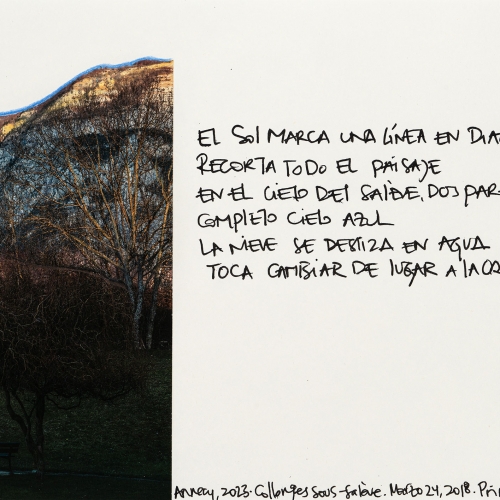 EL SOL MARCA UNA LÍNEA EN
RECORTA TODO EL PAISAJE
EN EL CIELO DEL SALÈVE, DOS
COMPLETO CIELO AZUL
LA NIEVE SE DESLIZA EN AGUA
TOCA CAMBIAR DE LUGAR A LA
Annecy, 2023. Collonges sous-Salève. Marzo 24, 2018.